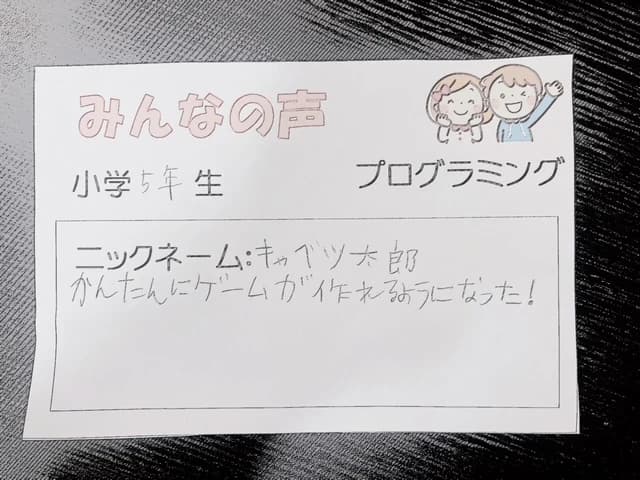 みんなの声
小学5年生 プログラミング
ニックネーム:キャベツ太郎
かんたんにゲームが作れるようになった!